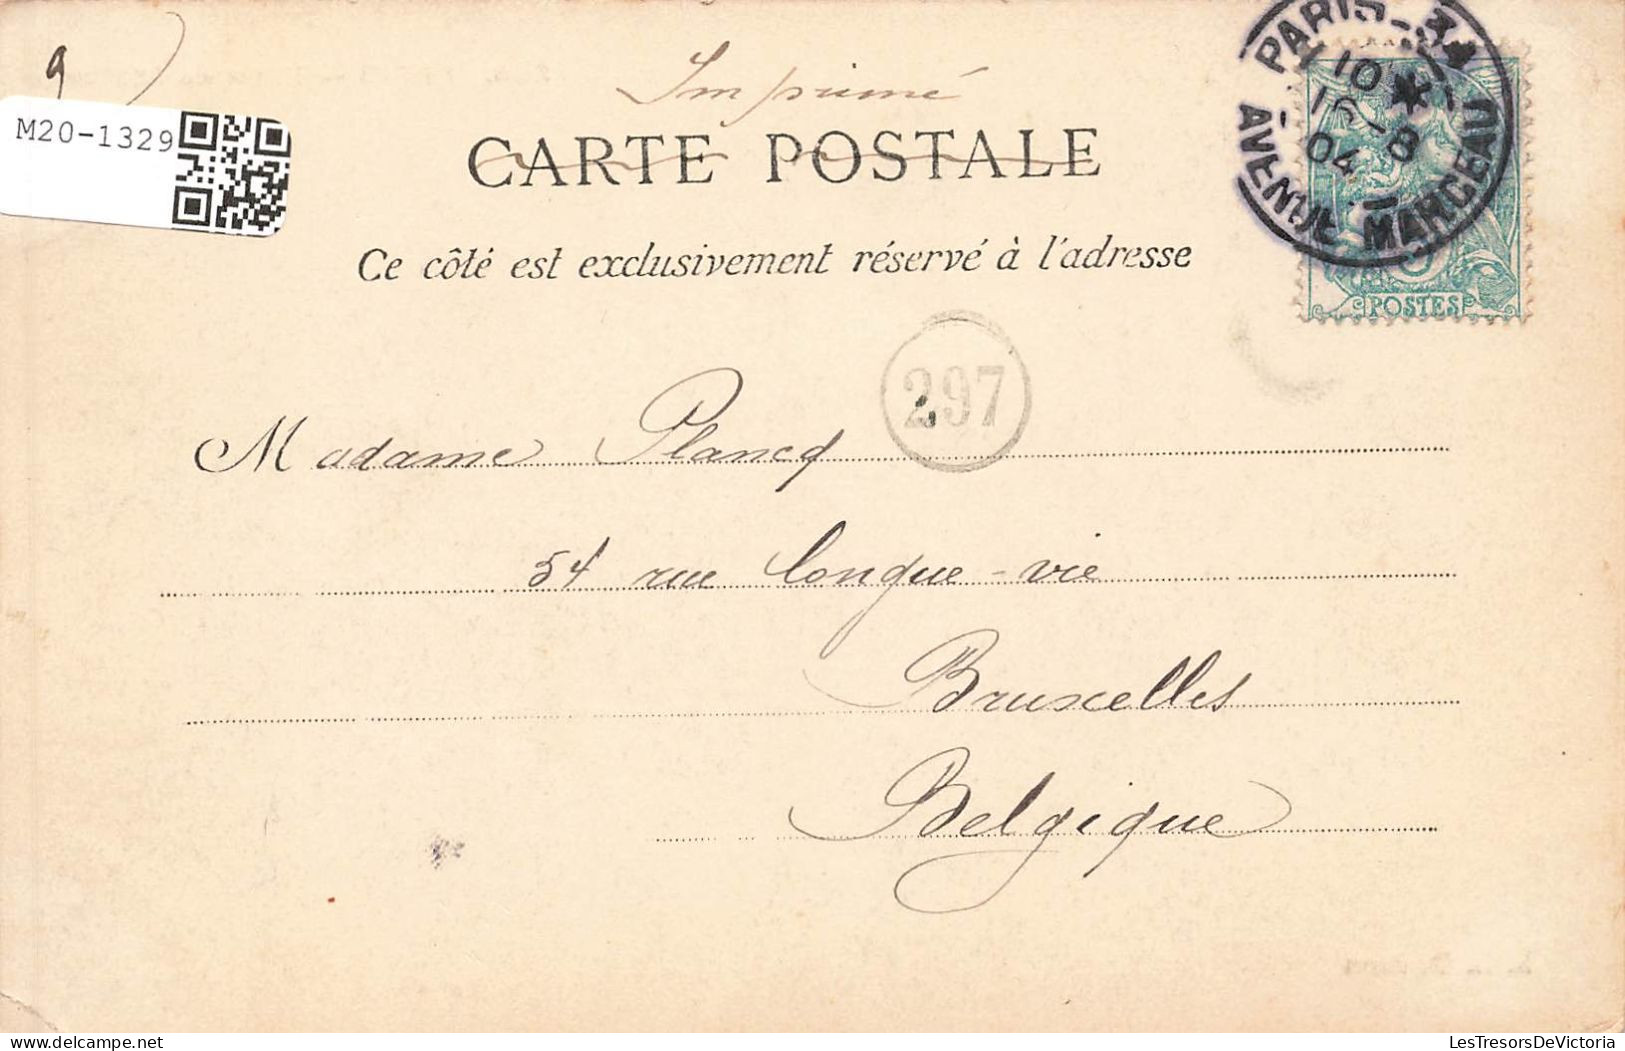 9
M20-1329
Imprimé
CARTE POSTALE
Ce côté est exclusivement réservé à l'adresse
PARIS - 34
10
16-8
04
AVENUE MARCEAU
POSTES
297
Madame Plancq
54 rue Longue-vie
Bruxelles
Belgique
LesTresorsDeVictoria